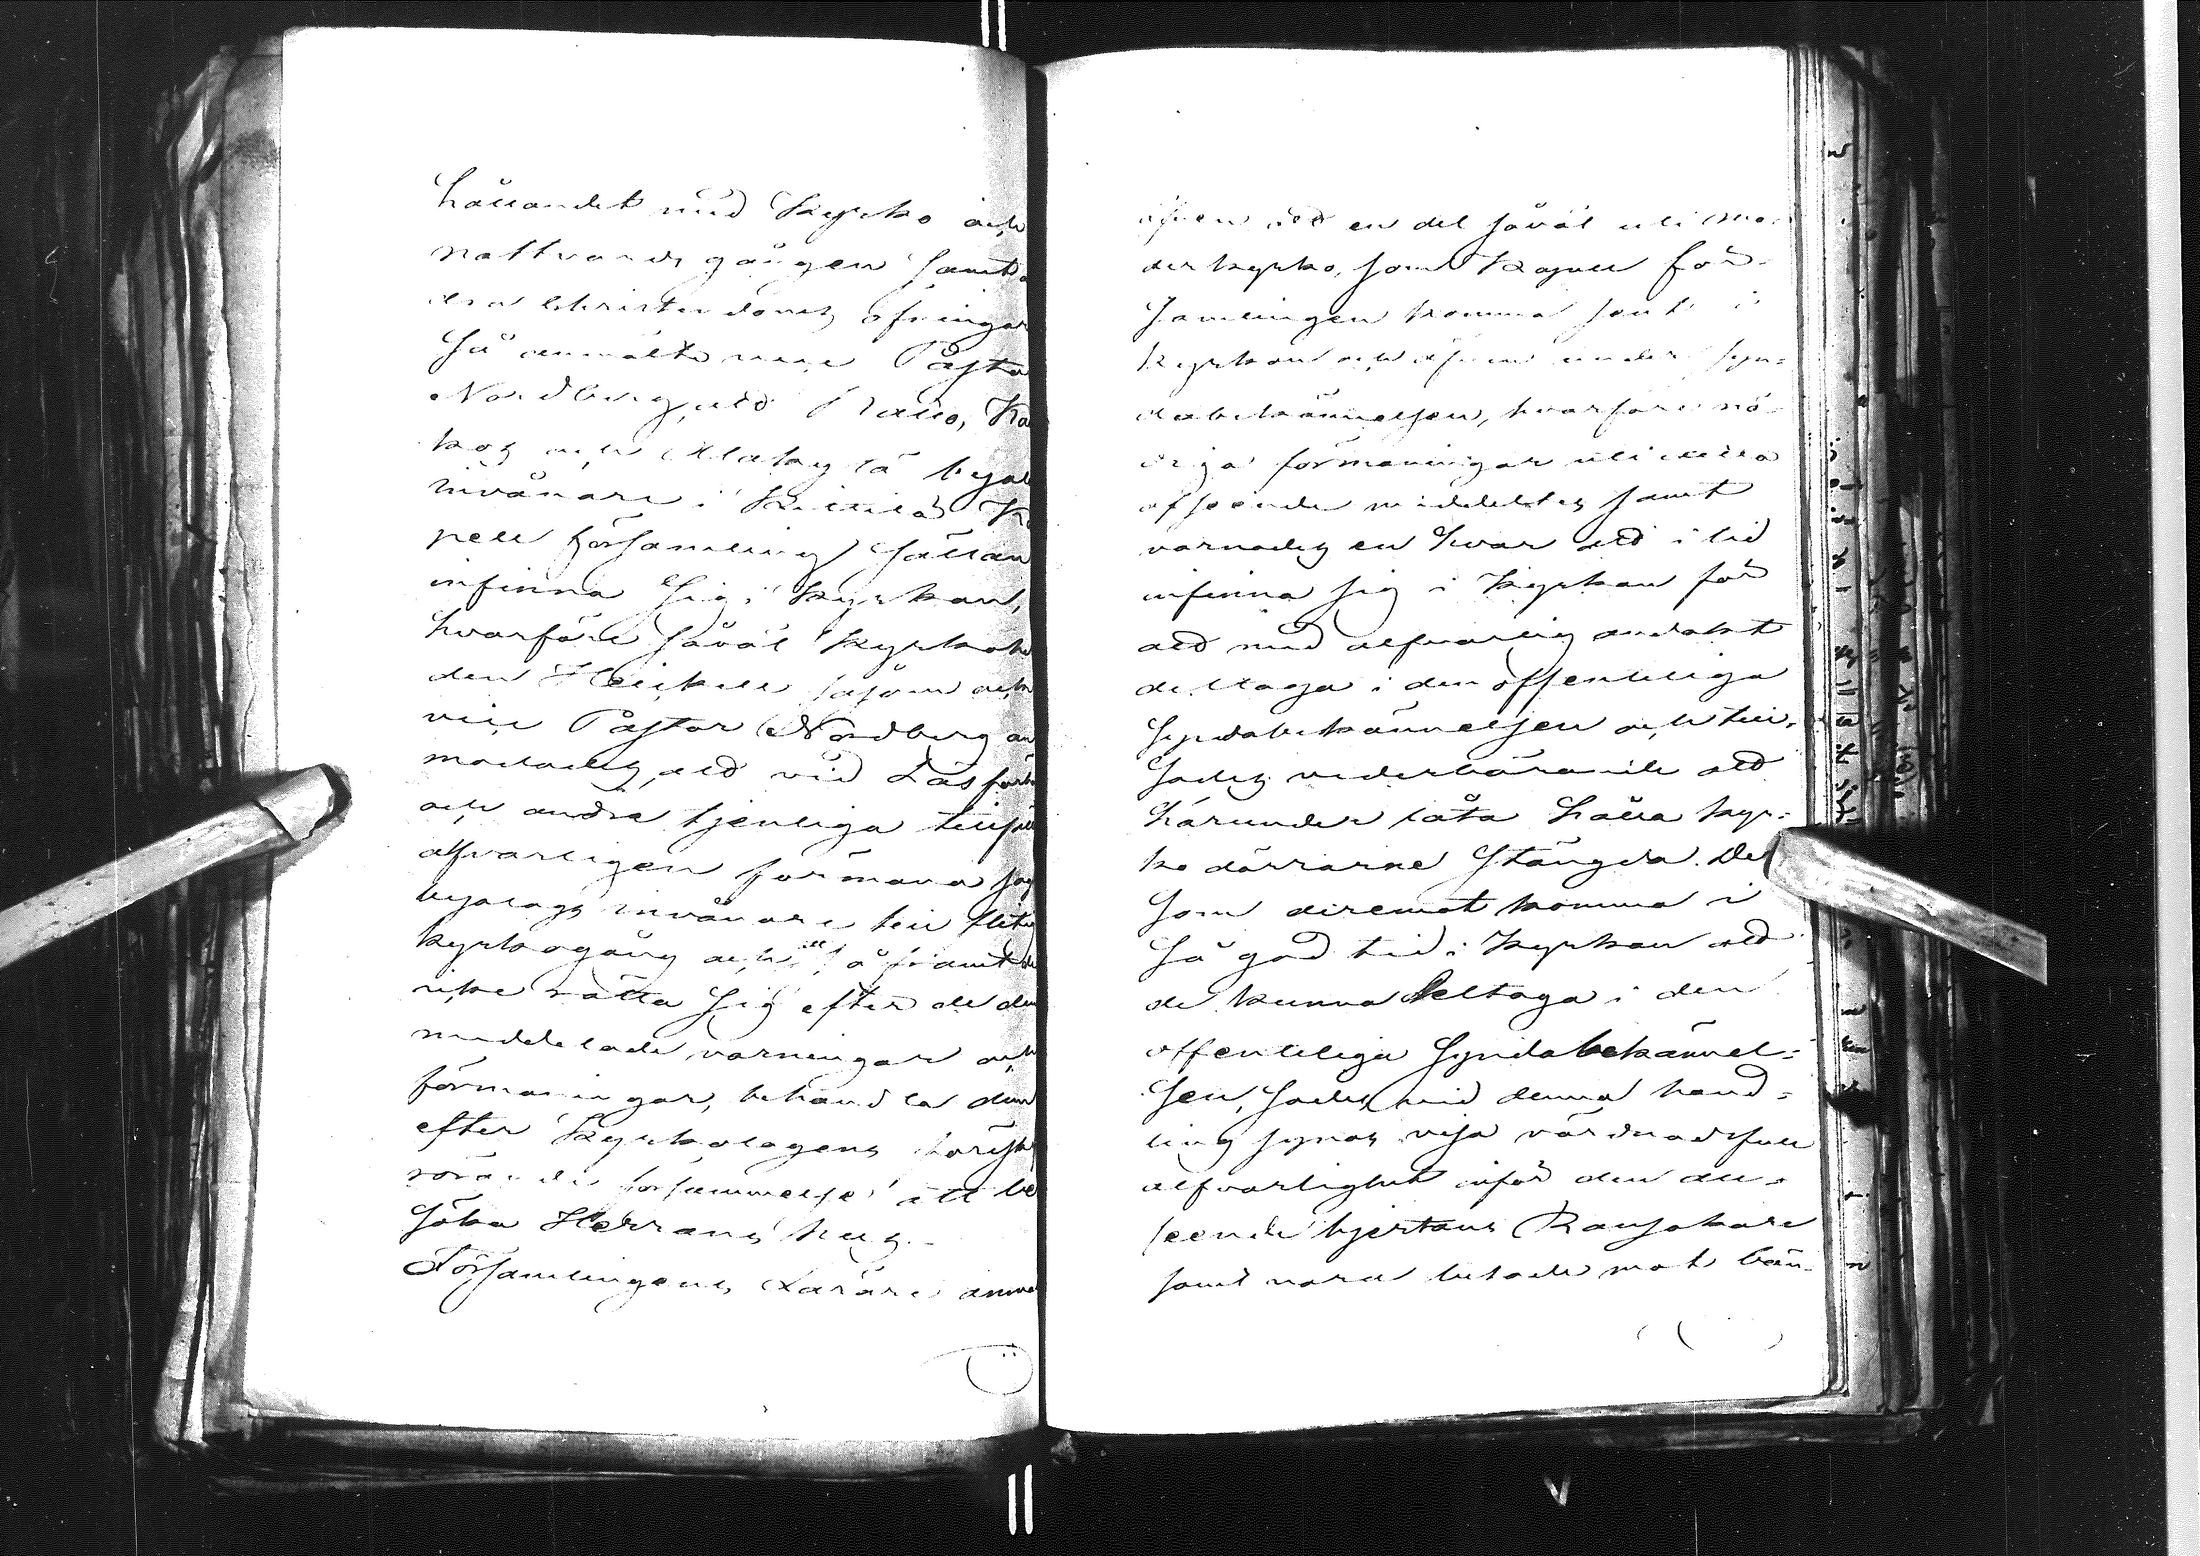 hållandet med Kyrko och
nattvards gången samt
Christendoms öfningar
Så anmälte vice Pasto
Nordberg, att Rauo, Ka
koz och Alaky lä byal
invånare i Kittilä Ka
pell församling sällan
infinna sig i Kyrkan,
hvarföre såväl Kyrkohe
den Heickell såsom och
vice Pastor Nordberg an
modades, att vid Läsförh
och andra tjenliga tillfäl
alfvarligen förmana
byalags invånare till fliti
kyrkogång och att, så framt de
icke rätta sig efter de dem
meddelade varningar och
förmaningar, behandla dem
efter Kyrkolagens föreskr
rörande försummelse att be
söka Herrans hus.
Församlingens Lärare anmä
äfven att en del såväl uti Mo-
derkyrko, som Kapell för-
samlingen komma sent i
Kyrkan och äfven under syn-
dabekännelsen, hvarföre nö-
diga förmaningar uti detta
afseende meddeltes samt
varnades en hvar att i tid
infinna sig i Kyrkan för
att med alfvarlig andakt
deltaga i den offentliga
Syndabekännelsen och till-
sades vederbörande att
härunder låta hålla kyr-
ko dörrarne stängda. De
som deremot komma i
så god tid i Kyrkan att
de kunna deltaga i den
offentliga Syndabekännel-
sen, sades vid denna hand-
ling synas visa vördnadsfull
alfvarlighet inför den all-
seende hjertans Ransakare
samt vara lutade mot bän-